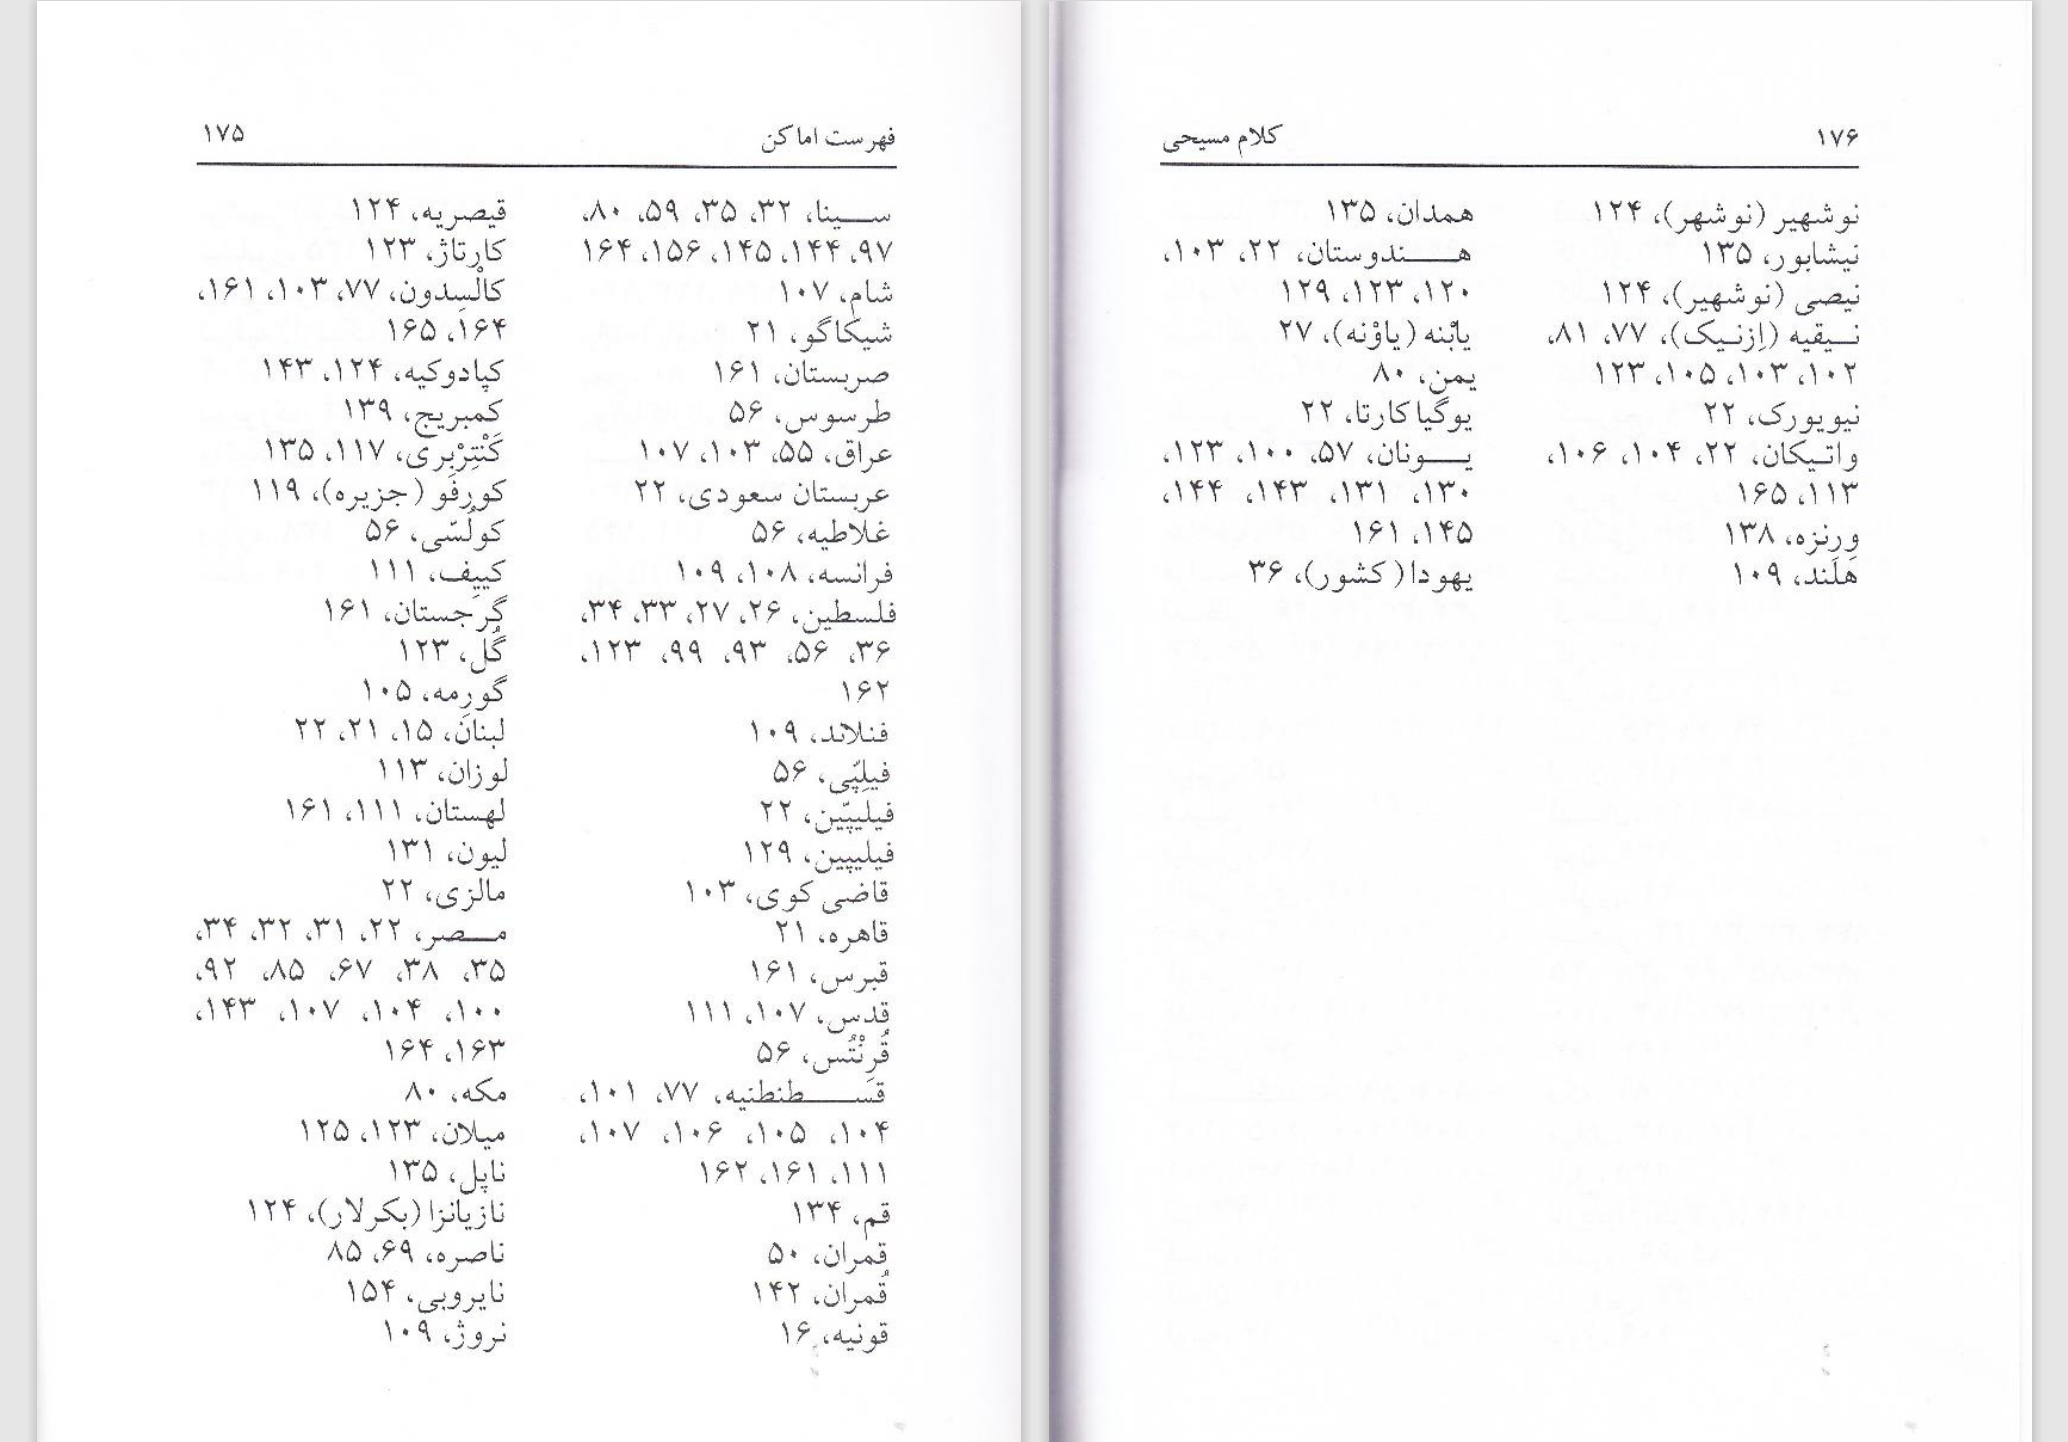 فهرست اماکن ۱۷۵
سینا، ۳۲، ۳۵، ۵۹، ۸۰،
۹۷، ۱۴۴، ۱۴۵، ۱۵۶، ۱۶۴
شام، ۱۰۷
شیکاگو، ۲۱
صربستان، ۱۶۱
طرسوس، ۵۶
عراق، ۵۵، ۱۰۳، ۱۰۷
عربستان سعودی، ۲۲
غلاطیه، ۵۶
فرانسه، ۱۰۸، ۱۰۹
فلسطین، ۲۶، ۲۷، ۳۳، ۳۴،
۳۶، ۵۶، ۹۳، ۹۹، ۱۲۳،
۱۶۲
فنلاند، ۱۰۹
فیلِپّی، ۵۶
فیلیپّین، ۲۲
فیلیپین، ۱۲۹
قاضی کوی، ۱۰۳
قاهره، ۲۱
قبرس، ۱۶۱
قدس، ۱۰۷، ۱۱۱
قُرِنْتُس، ۵۶
قسطنطنیه، ۷۷، ۱۰۱،
۱۰۴، ۱۰۵، ۱۰۶، ۱۰۷،
۱۱۱، ۱۶۱، ۱۶۲
قم، ۱۳۴
قمران، ۵۰
قُمران، ۱۴۲
قونیه، ۱۶
قیصریه، ۱۲۴
کارتاژ، ۱۲۳
کالْسِدون، ۷۷، ۱۰۳، ۱۶۱،
۱۶۴، ۱۶۵
کپادوکیه، ۱۲۴، ۱۴۳
کمبریج، ۱۳۹
کَنْتِرْبِری، ۱۱۷، ۱۳۵
کورفو (جزیره)، ۱۱۹
کولُسّی، ۵۶
کییِف، ۱۱۱
گرجستان، ۱۶۱
گُل، ۱۲۳
گورِمه، ۱۰۵
لبنان، ۱۵، ۲۱، ۲۲
لوزان، ۱۱۳
لهستان، ۱۱۱، ۱۶۱
لیون، ۱۳۱
مالزی، ۲۲
مصر، ۲۲، ۳۱، ۳۲، ۳۴،
۳۵، ۳۸، ۶۷، ۸۵، ۹۲،
۱۰۰، ۱۰۴، ۱۰۷، ۱۴۳،
۱۶۳، ۱۶۴
مکه، ۸۰
میلان، ۱۲۳، ۱۲۵
ناپل، ۱۳۵
نازیانزا (بکرلار)، ۱۲۴
ناصره، ۶۹، ۸۵
نایروبی، ۱۵۴
نروژ، ۱۰۹
۱۷۶ کلام مسیحی
نوشهیر (نوشهر)، ۱۲۴
نیشابور، ۱۳۵
نیصی (نوشهیر)، ۱۲۴
نیقیه (اِزنیک)، ۷۷، ۸۱،
۱۰۲، ۱۰۳، ۱۰۵، ۱۲۳
نیویورک، ۲۲
واتیکان، ۲۲، ۱۰۴، ۱۰۶،
۱۱۳، ۱۶۵
وِرِنزه، ۱۳۸
هلند، ۱۰۹
همدان، ۱۳۵
هندوستان، ۲۲، ۱۰۳،
۱۲۰، ۱۲۳، ۱۲۹
یابْنه (یاوْنه)، ۲۷
یمن، ۸۰
یوگیاکارتا، ۲۲
یونان، ۵۷، ۱۰۰، ۱۲۳،
۱۳۰، ۱۳۱، ۱۴۳، ۱۴۴،
۱۴۵، ۱۶۱
یهودا (کشور)، ۳۶